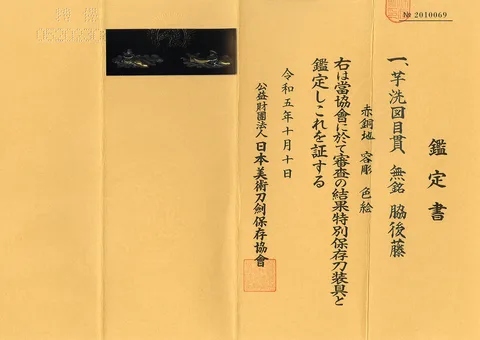 № 2010069
鑑定書
一、芋洗図目貫 無銘 脇後藤
赤銅地 容彫 色絵
右は當協會に於て審査の結果特別保存刀装具と
鑑定しこれを証する
令和五年十月十日
公益財團法人 日本美術刀剣保存協會
特保